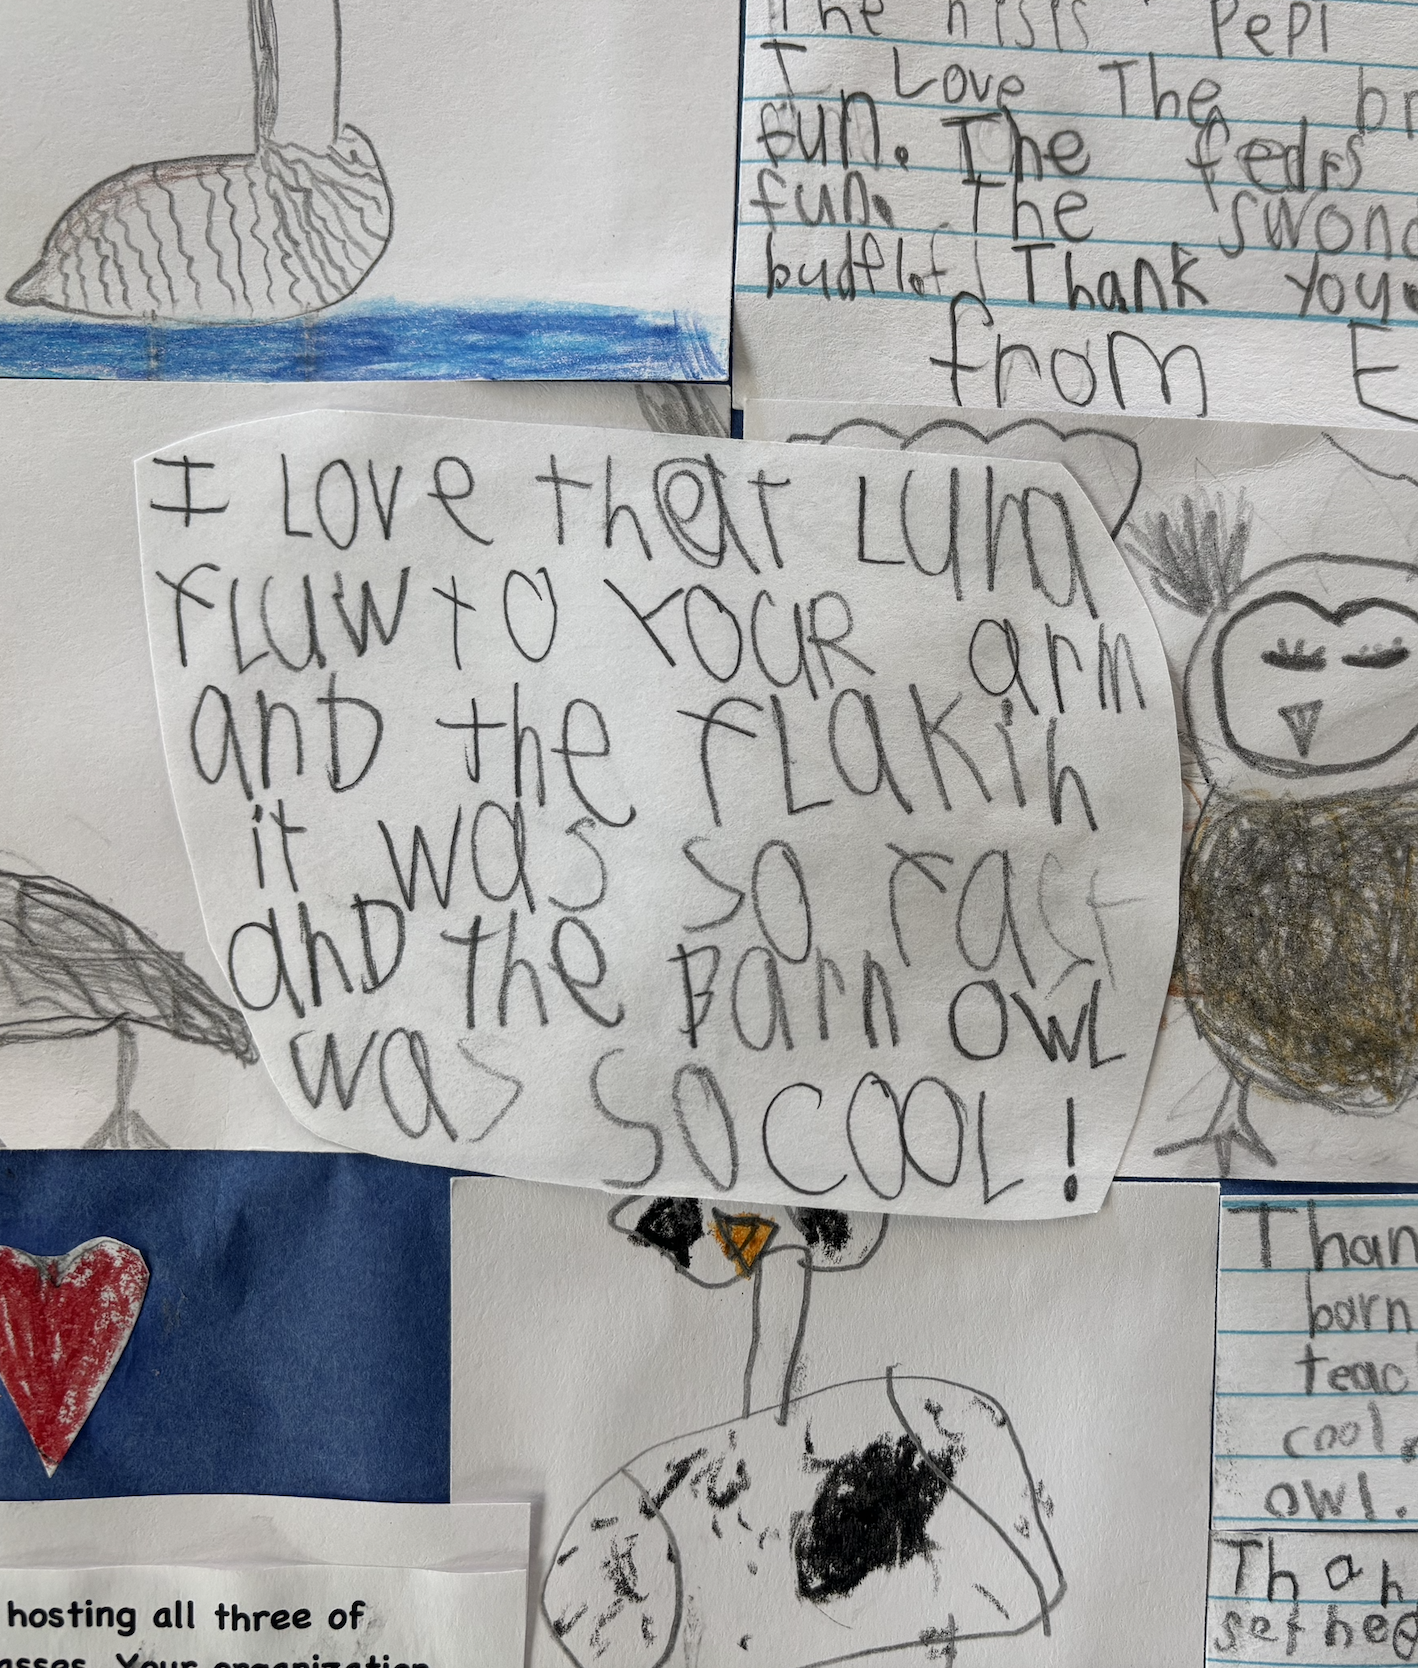 The hisis Pepl
I Love The br
fun. The fedrs
fun. The swond
budflof! Thank you
from E
I Love that Luna
fLuw to YOUR arm
and the fLakin
it was so fast
and the Barn OwL
was SO COOL!
Than
barn
teac
cool
owl.
Than
set hee
hosting all three of
asses. Your organization